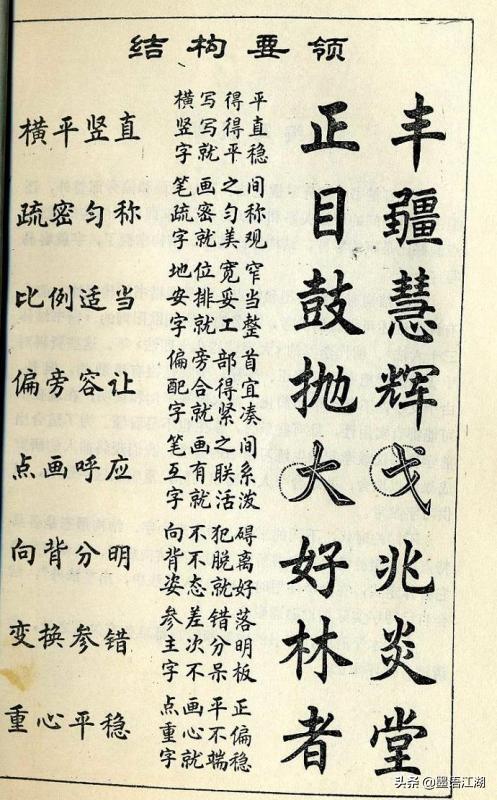 结构要领
横平竖直
横写得平
竖写得直
字就平稳
正丰
疏密匀称
笔画之间
疏密匀称
字就美观
目疆
比例适当
地位宽窄
安排妥当
字就工整
鼓慧
偏旁容让
偏旁部首
配合得宜
字就紧凑
抛辉
点画呼应
笔画之间
互有联系
字就活泼
大戈
向背分明
向不犯碍
背不脱离
姿态就好
好兆
变换参错
参差错落
主次分明
字不呆板
林炎
重心平稳
点画平正
重心不偏
字就端稳
者堂
头条@墨语江湖